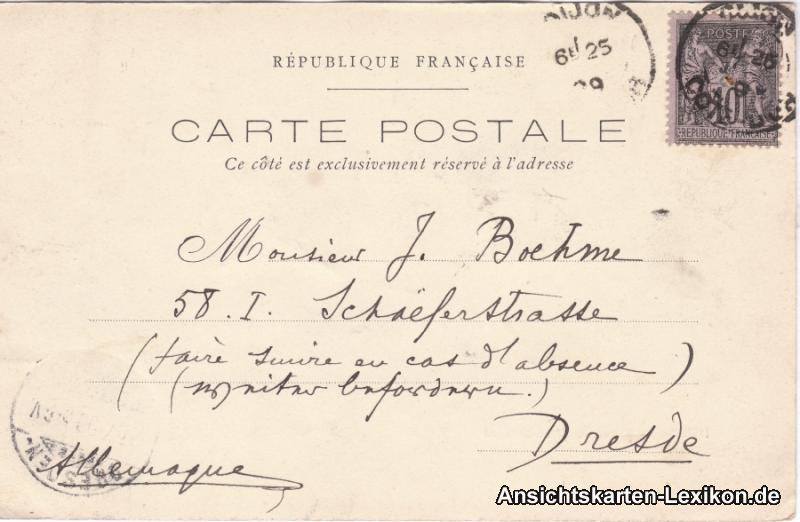 DIJON
6E 25
POSTE
10
REPUBLIQUE FRANÇAISE
RÉPUBLIQUE FRANÇAISE
CARTE POSTALE
Ce côté est exclusivement réservé à l'adresse
Monsieur J. Boehme
58. I. Schäferstrasse
(faire suivre en cas d'absence)
(weiter befordern.)
Dresde
Allemagne
DRESDEN
Ansichtskarten-Lexikon.de